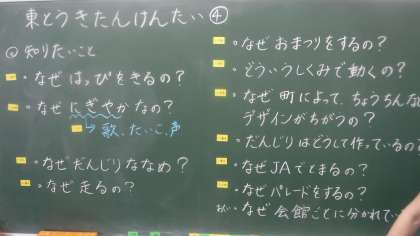 東とうきたんけんたい④
知りたいこと
・なぜ はっぴをきるの?
・なぜ にぎやかなの?
↳歌、たいこ、声
・なぜ だんじりななめ?
・なぜ 走るの?
・なぜ おまつりをするの?
・どういうしくみで動くの?
・なぜ 町によって、ちょうちん
デザインがちがうの?
・だんじりはどうして作っているの
・なぜ JAでとまるの?
・なぜ パレードをするの?
・なぜ 会館ごとに分かれて